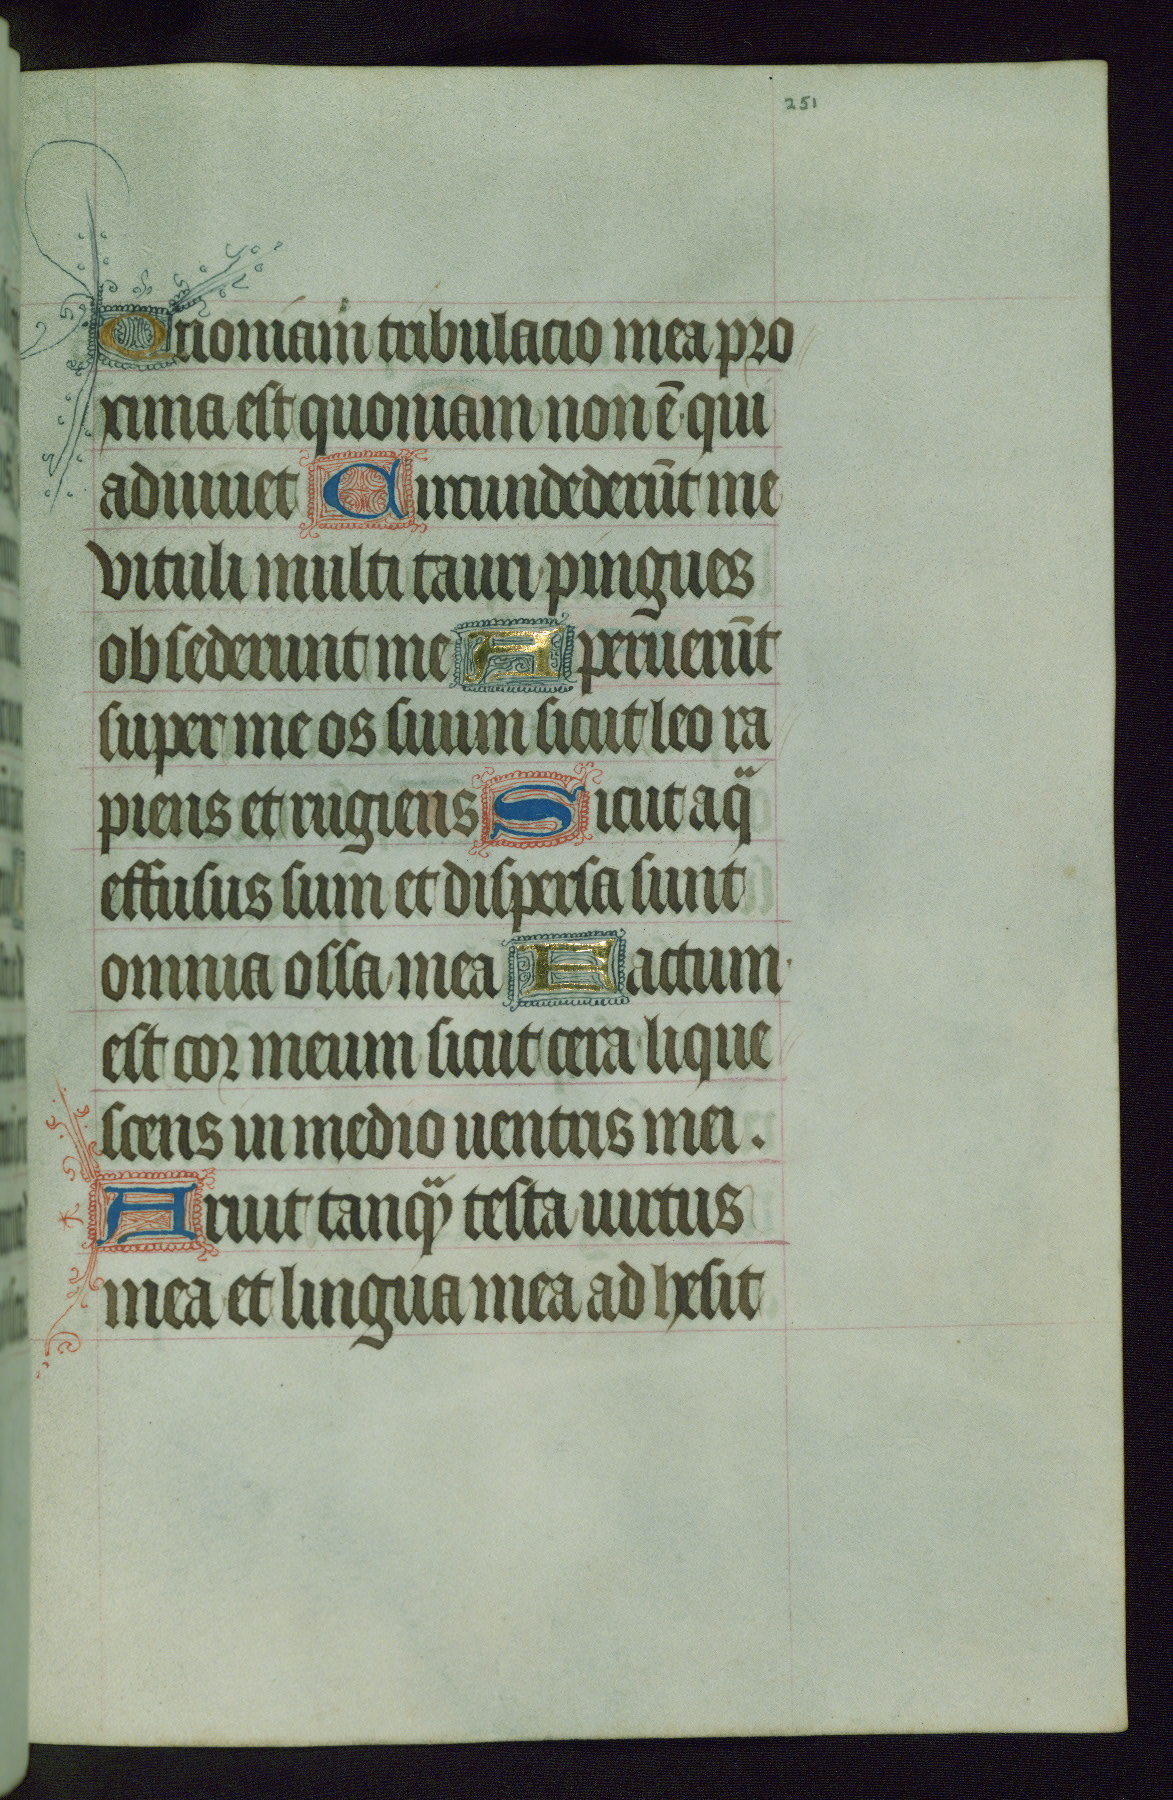 251
Quoniam tribulacio mea pro
xima est quoniam non ē qui
adiuuet Circundederūt me
vituli multi tauri pingues
obsederunt me Aperuerūt
super me os suum sicut leo ra
piens et rugiens Sicut aq̃
effusus sum et dispersa sunt
omnia ossa mea Factum
est cor meum sicut cera lique
scens in medio uentris mei .
Aruit tanq̃ testa uirtus
mea et lingua mea adhesit